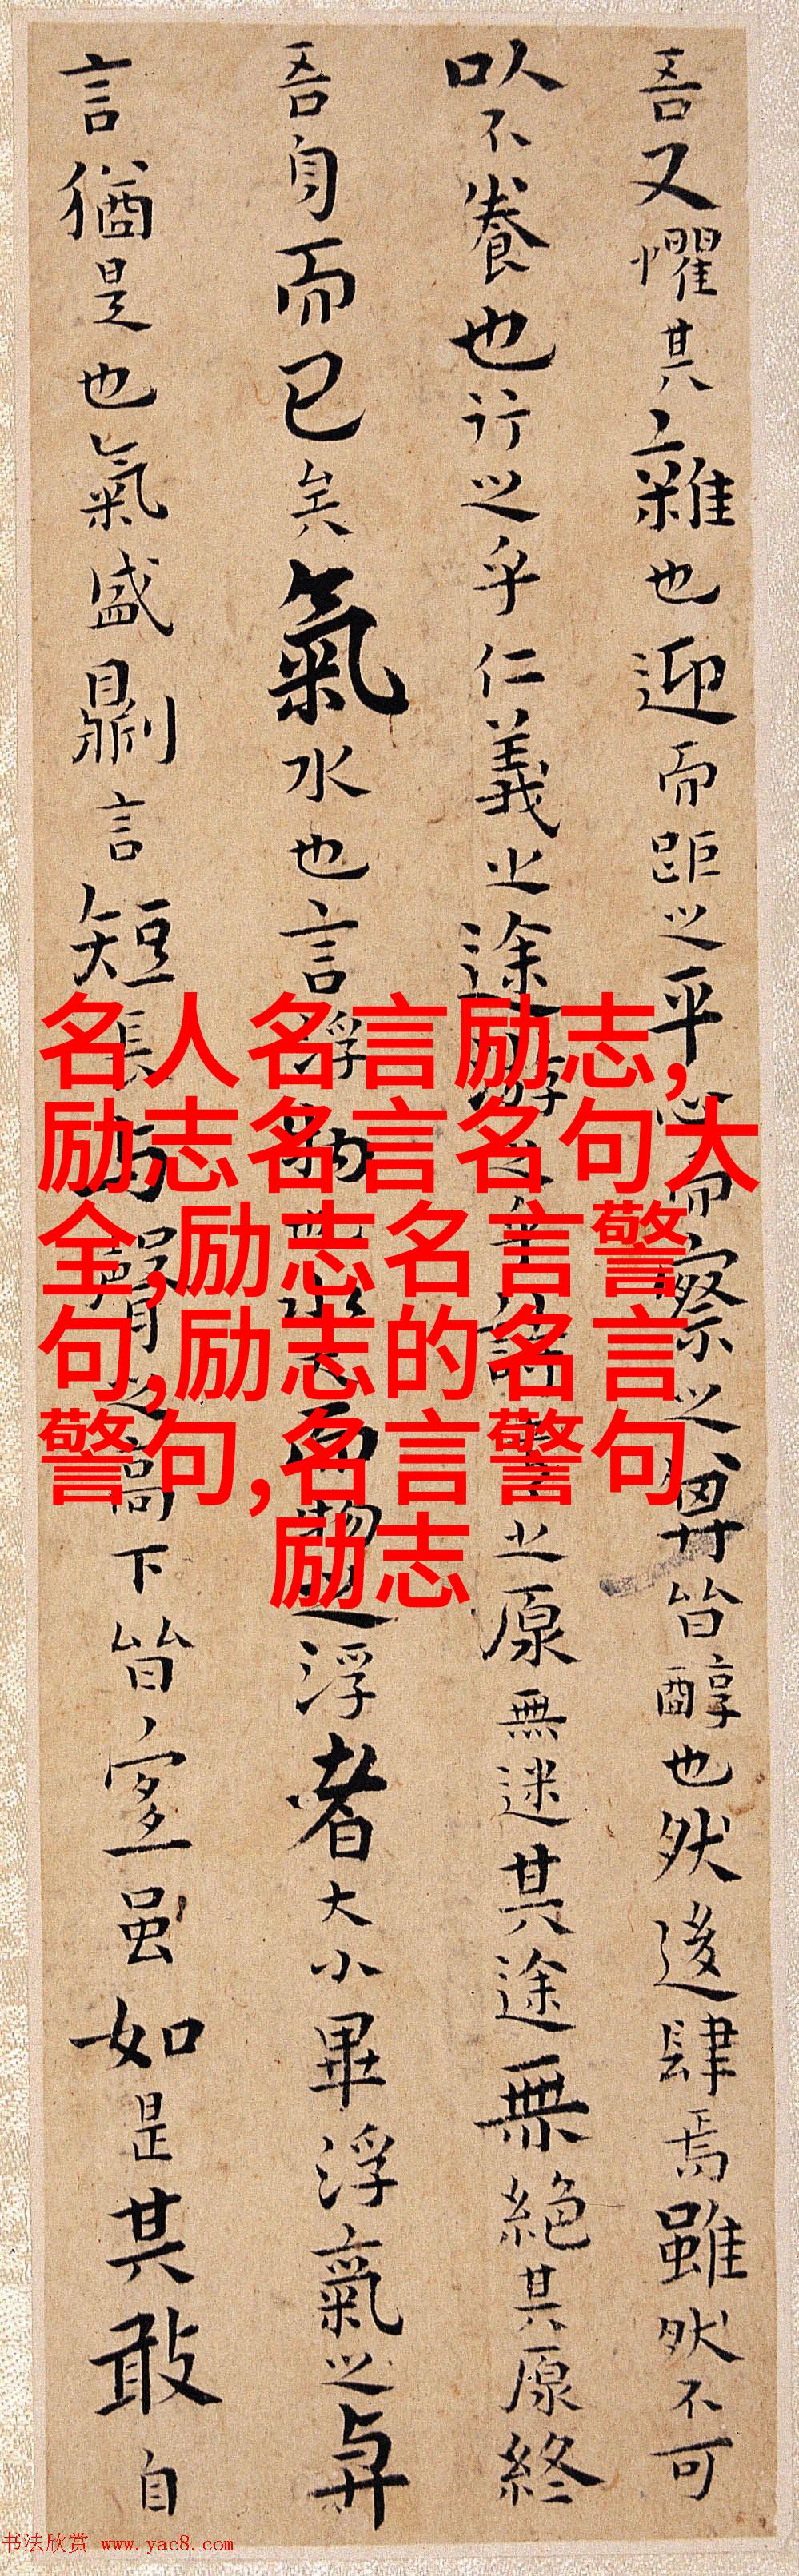 吾又懼其雜也迎而距之平心而察之其皆醇也然後肆焉雖然不可
以不養也行之乎仁義之途游之乎詩書之原無迷其途無絕其原終
吾身而已矣氣水也言浮物也水大而物之浮者大小畢浮氣之與
言猶是也氣盛則言短長與聲之高下皆宜雖如是其敢自
名人名言励志,
励志名言名句大
全,励志名言警
句,励志的名言
警句,名言警句
励志
书法欣赏 www.yac8.com